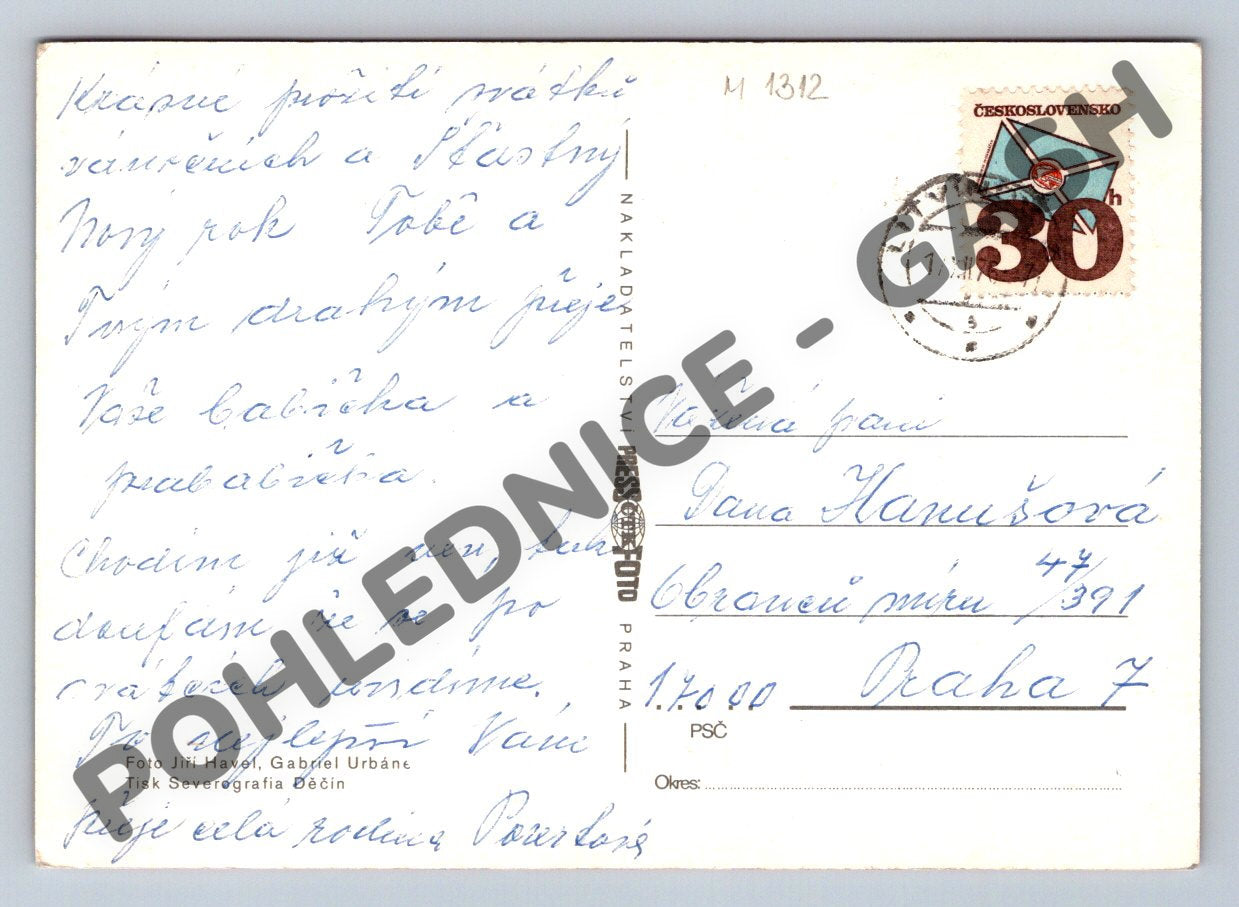 Krásné prožití svátků
vánočních a Šťastný
Nový rok Tobě a
Tvým drahým přeje
Vaše babička a
prababička.
Chodím již ven, tak
doufám že se po
svátcích uvidíme.
To nejlepší Vám
přeje celá rodina
Foto Jiří Havel, Gabriel Urbáne
Tisk Severografia Děčín
NAKLADATELSTVÍ PRESSFOTO PRAHA
ČTK
M 1312
ČESKOSLOVENSKO
30 h
Vážená paní
Dana Hanušová
Obránců míru 47/391
170 00 Praha 7
PSČ
Okres:
POHLEDNICE - GASH